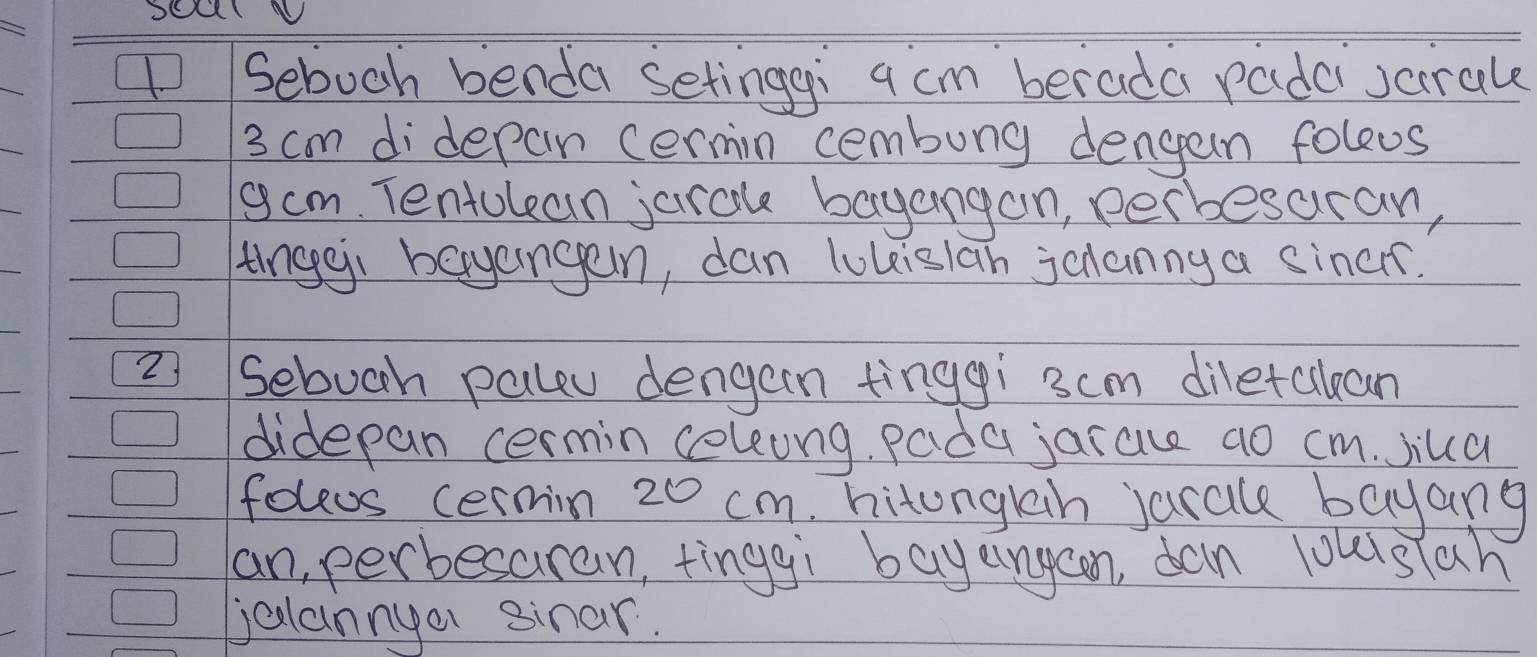 soal
1. Sebuah benda setinggi 4 cm berada pada jarak
3 cm di depan cermin cembung dengan fokus
9 cm. Tentukan jarak bayangan, perbesaran,
tinggi bayangan, dan lukislah jalannya sinar.
2. Sebuah paku dengan tinggi 3 cm diletakan
didepan cermin cekung. Pada jarak 40 cm. jika
fokus cermin 20 cm. hitunglah jarak bayang
an, perbesaran, tinggi bayangan, dan lukislah
jalannya sinar.